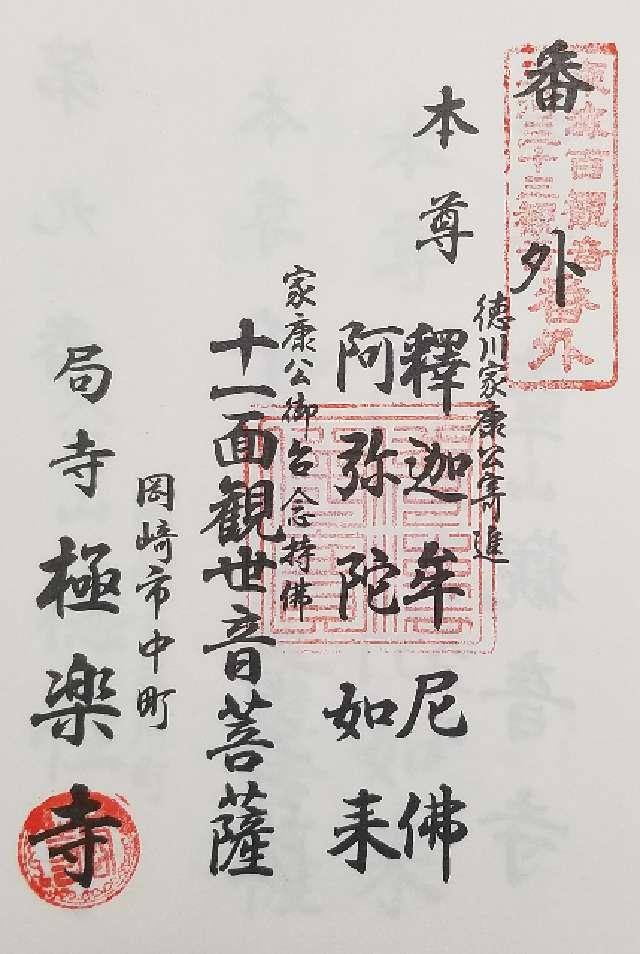 番外
本尊
徳川家康公寄進
釋迦牟尼佛
阿弥陀如来
家康公御台念持佛
十一面観世音菩薩
岡崎市中町
局寺極楽寺
百観音
三十三観
番外